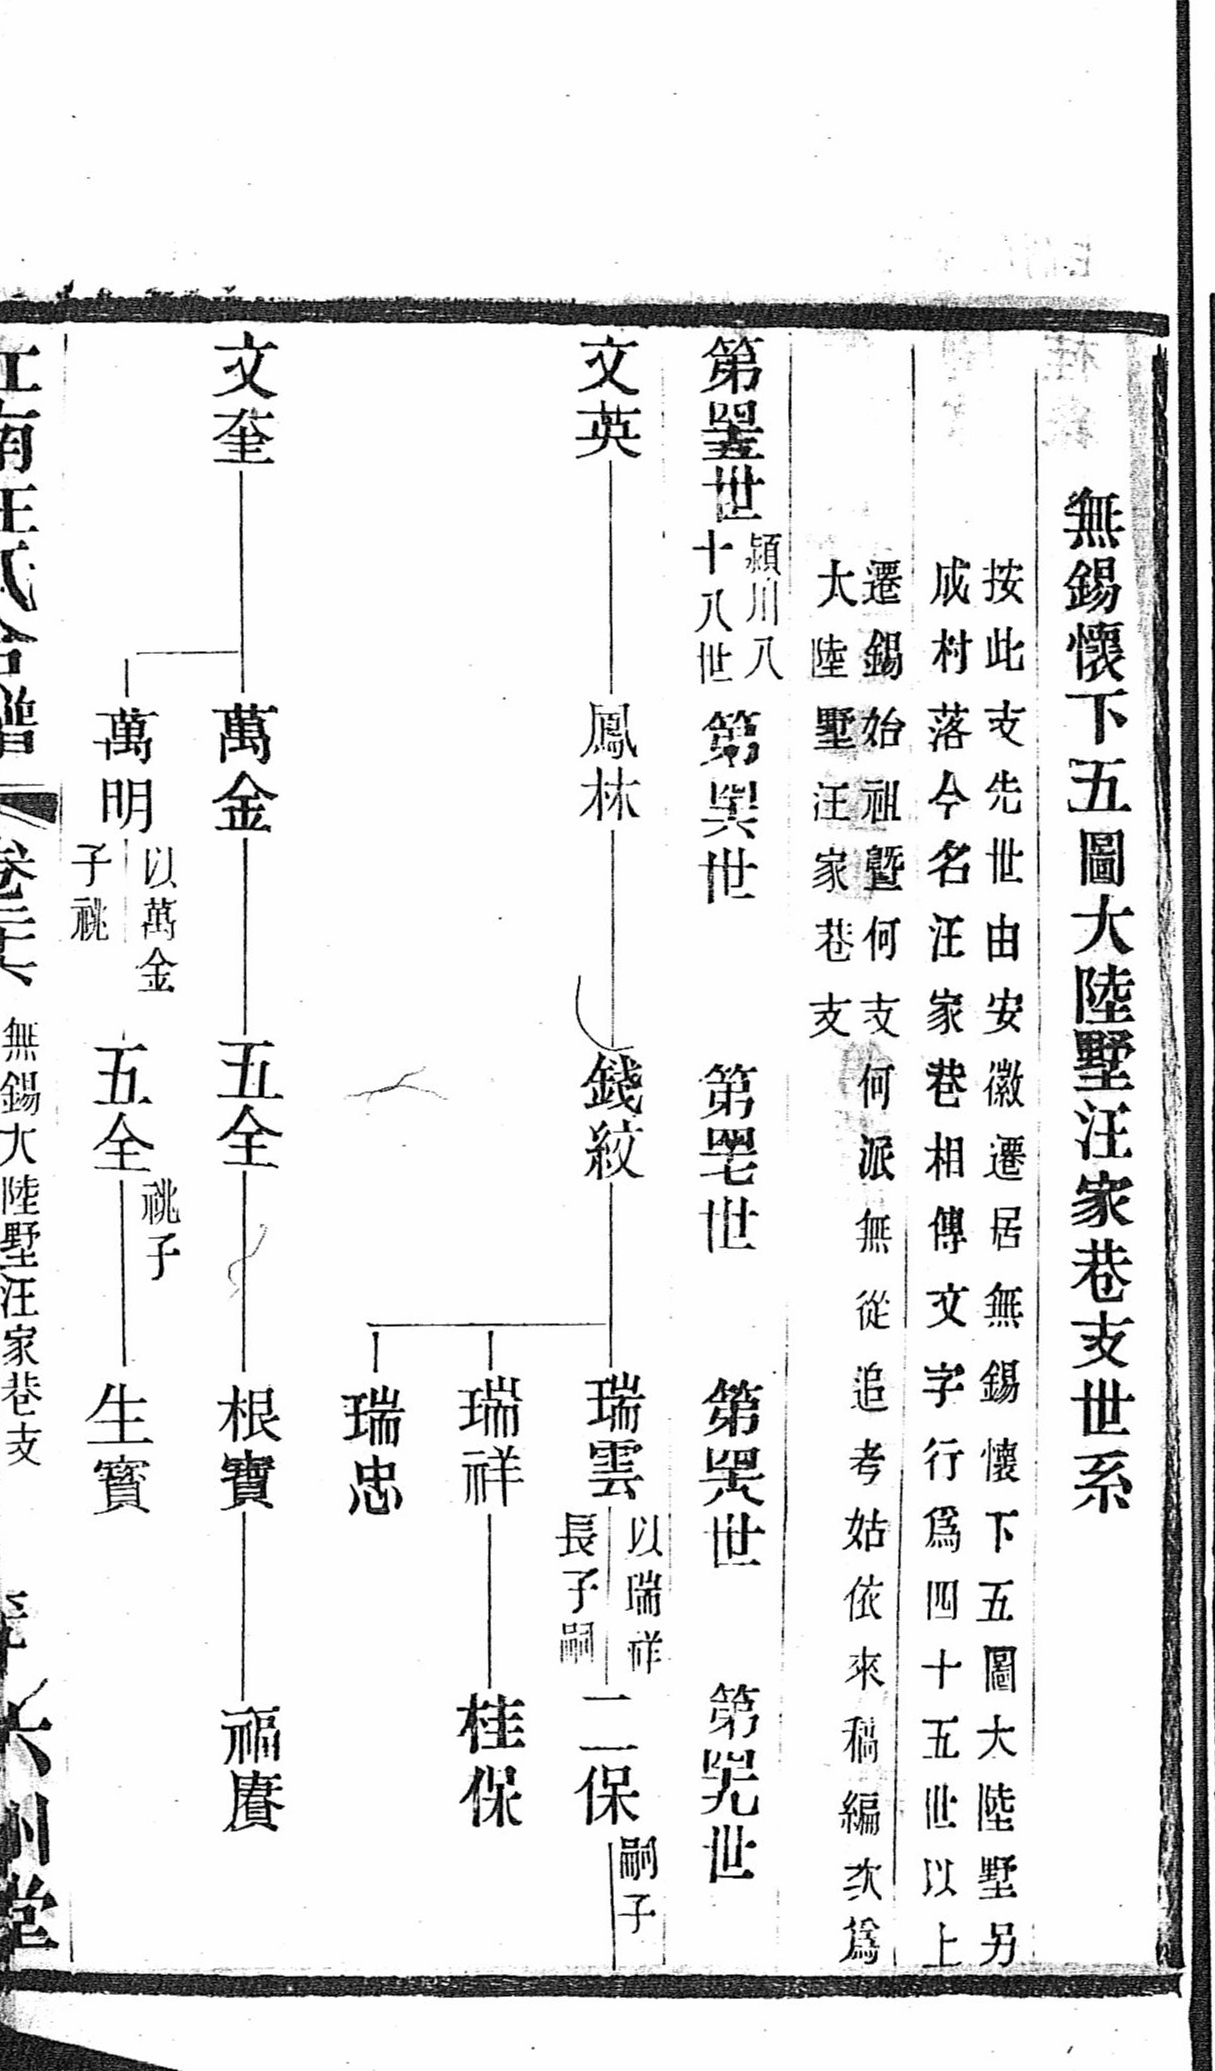 無錫懷下五圖大陸墅汪家巷支世系
按此支先世由安徽遷居無錫懷下五圖大陸墅另
成村落今名汪家巷相傳文字行爲四十五世以上
遷錫始祖曁何支何派無從追考姑依來稿編次爲
大陸墅汪家巷支
第𦊆五世 潁川八十八世
第𦊆六世
第𦊆七世
第𦊆八世
第𦊆九世
文英
鳳林
錢紋
瑞雲 以瑞祥長子嗣
二保 嗣子
瑞祥
桂保
瑞忠
文奎
萬金
五全
根寶
福賡
萬明 以萬金子祧
五全 祧子
生寶
江南汪氏合譜
卷二六
無錫大陸墅汪家巷支
六州堂